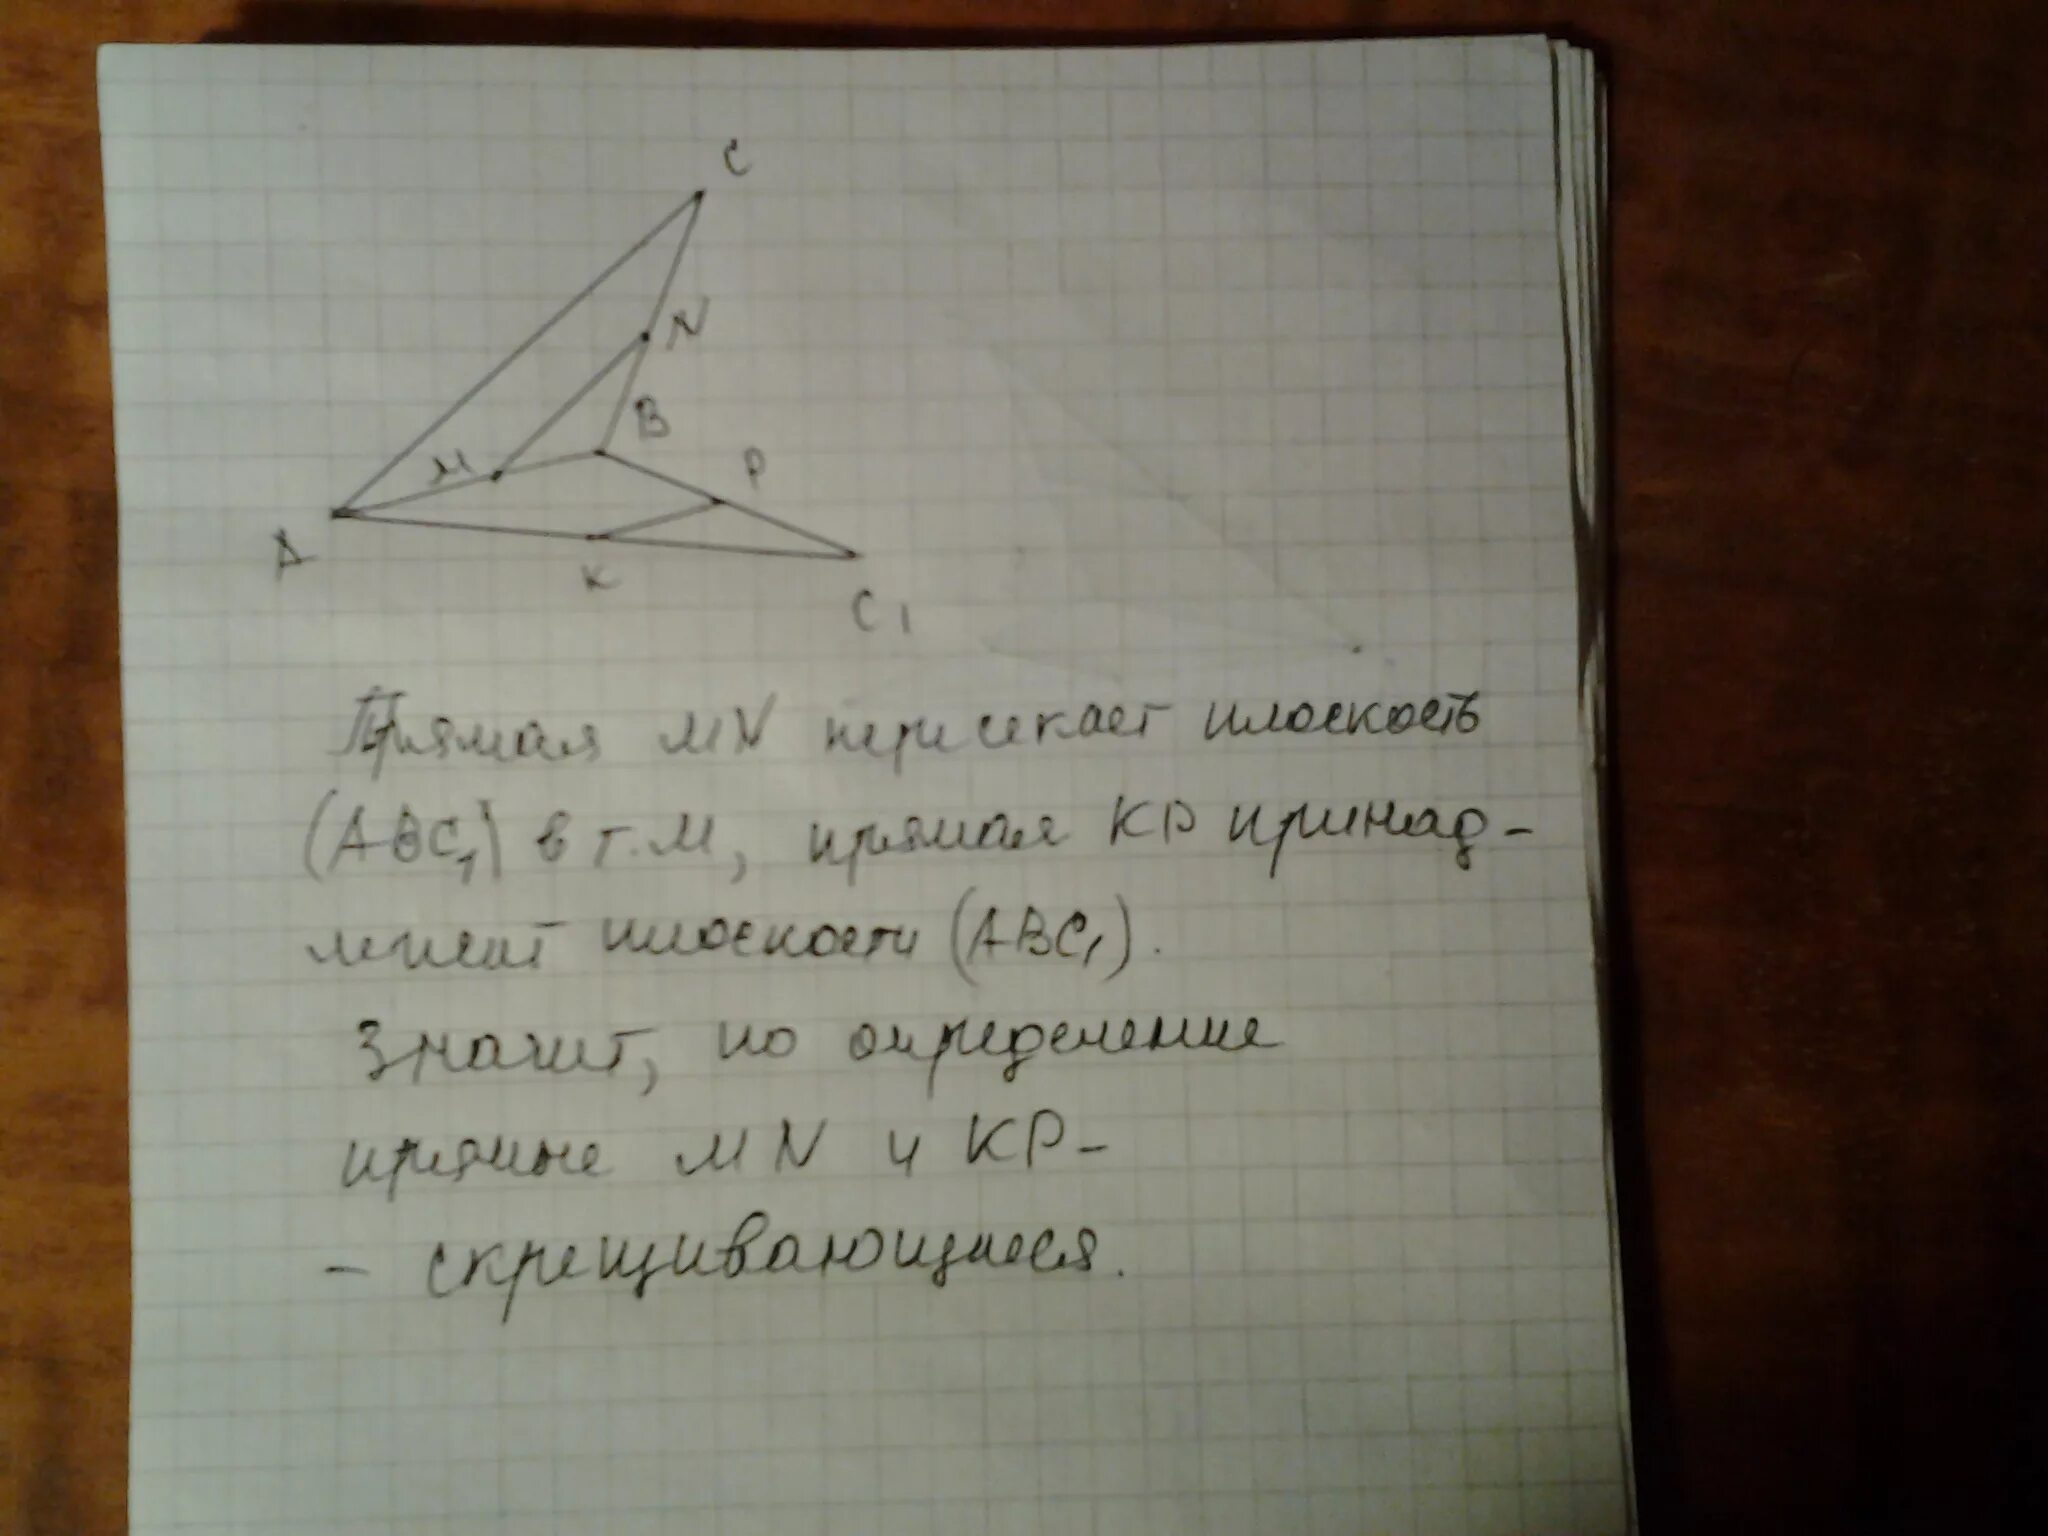 C
N
B
M
P
A
K
C₁
Прямая MN пересекает плоскость
(ABC₁) в т. M, прямая KP принад-
лежит плоскости (ABC₁).
Значит, по определение
прямые MN и KP -
- скрещивающиеся.